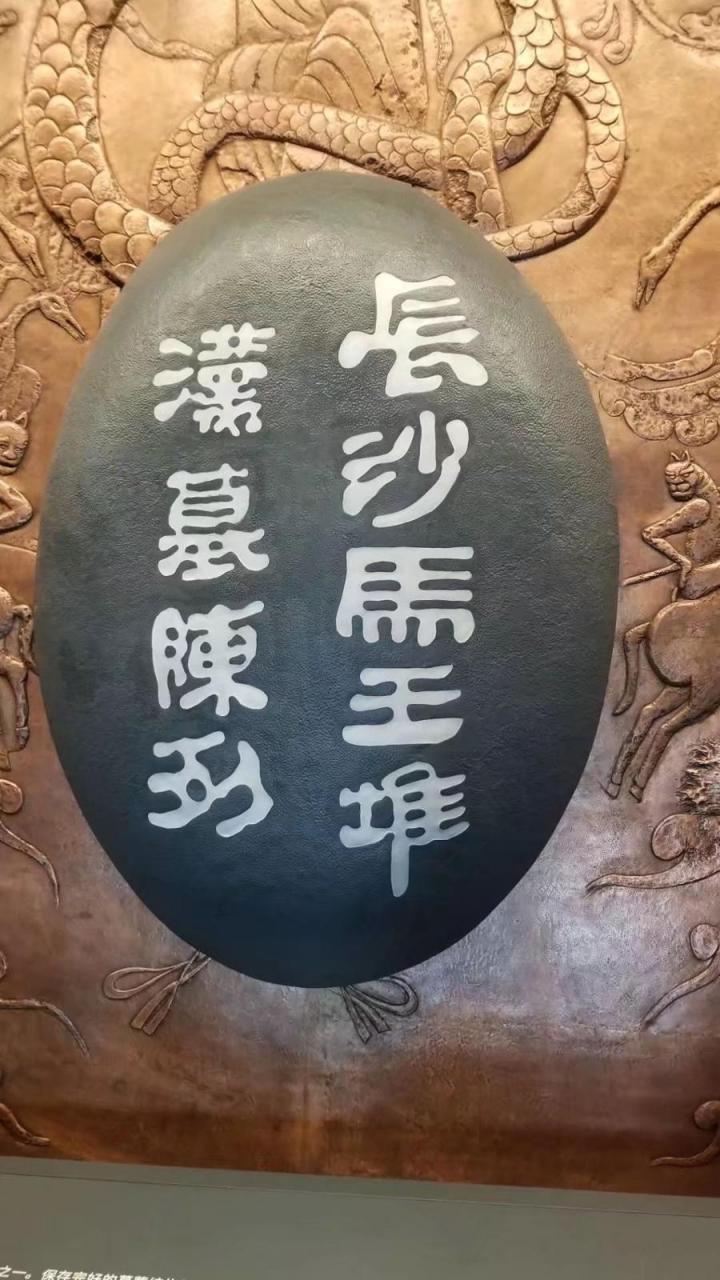 長沙馬王堆
漢墓陳列
之一。保存完好的墓葬结